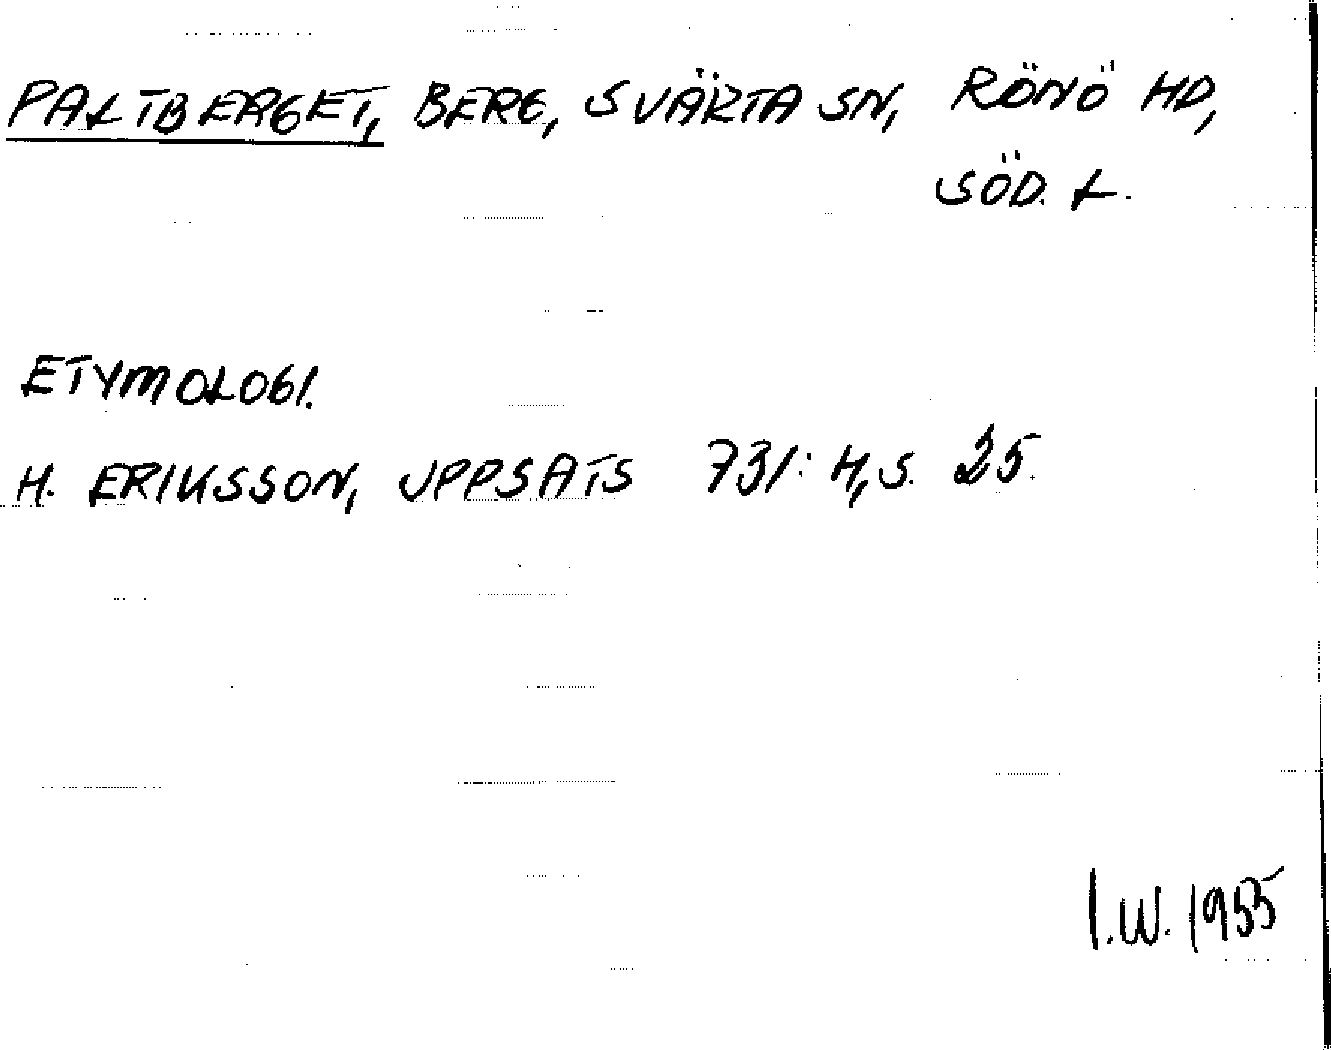 PALTBERGET, BERG, SVÄRTA SN, RÖNÖ HD,
SÖD. L.
ETYMOLOGI.
H. ERIKSSON, UPPSATS 731: H, S. 25.
I.W. 1955